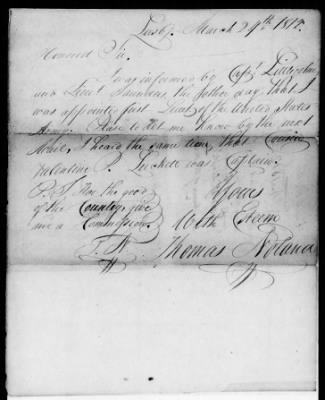 March 29th 1812.
Honored Sir.
I was informed by Capt
and Lieut Saunders the other day, that I
was appointed first Lieut of the United States
Army. Please to let me know by the next
Mail, I heard the same time, that Cousin
Valentine P. Luckett was Captain.
P. S. For the good
Yours
of the Country, give
With Esteem
me a Commission.
T. N.
Thomas Noland